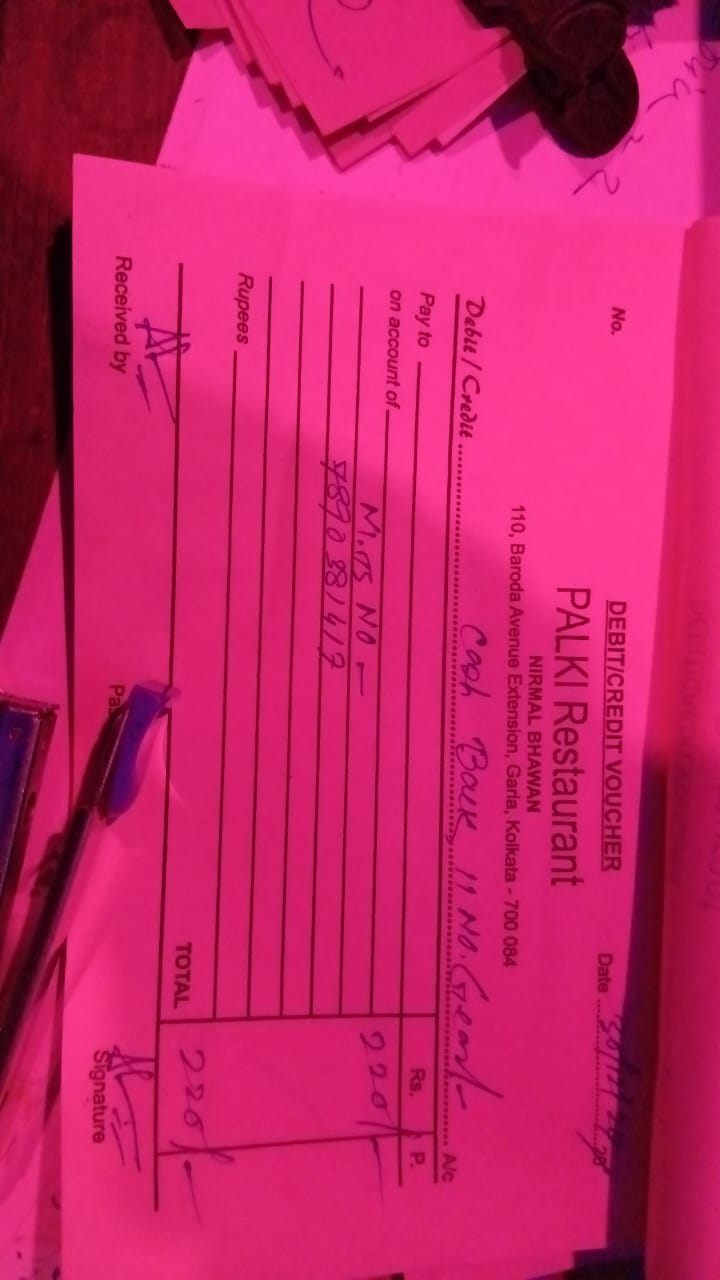 DEBIT/CREDIT VOUCHER
No.
Date 30/12/24 20
PALKI Restaurant
NIRMAL BHAWAN
110, Baroda Avenue Extension, Garla, Kolkata - 700 084
Debit / Credit Cash Back 11 No. A/c
Rs. P.
Pay to
on account of 220/-
M.TS NO -
7890381417
Rupees
TOTAL 220/-
Received by Pa Signature